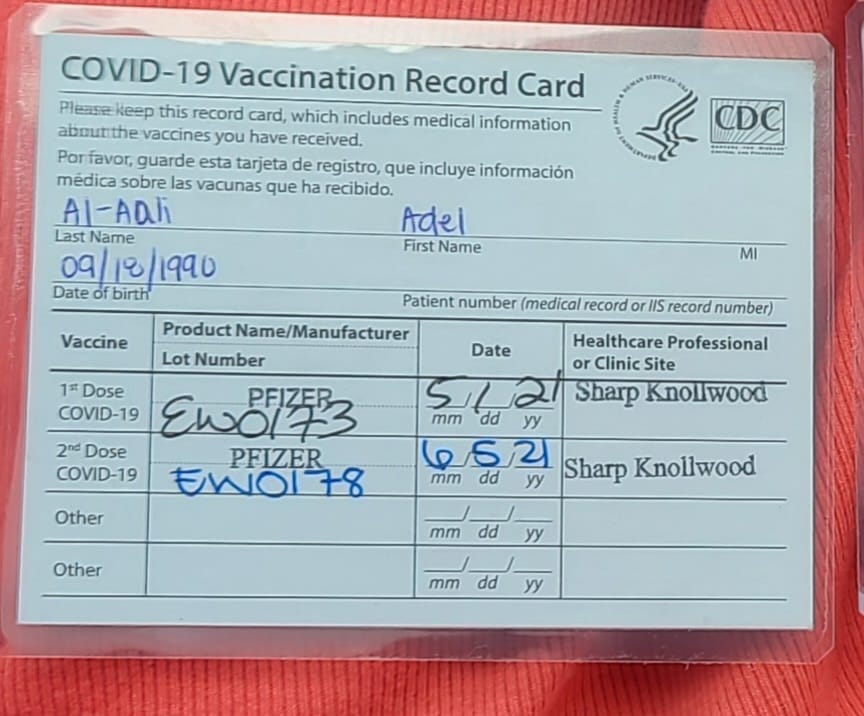 COVID-19 Vaccination Record Card
Please keep this record card, which includes medical information
about the vaccines you have received.
Por favor, guarde esta tarjeta de registro, que incluye información
médica sobre las vacunas que ha recibido.
DEPARTMENT OF HEALTH & HUMAN SERVICES·USA
CDC
CENTERS FOR DISEASE
CONTROL AND PREVENTION
Al-Aali Adel
Last Name First Name MI
09/18/1990
Date of birth Patient number (medical record or IIS record number)
Vaccine
Product Name/Manufacturer
Lot Number
Date
Healthcare Professional
or Clinic Site
1st Dose
COVID-19
PFIZER
EW0173
5/1/21
mm dd yy
Sharp Knollwood
2nd Dose
COVID-19
PFIZER
EW0178
6/5/21
mm dd yy
Sharp Knollwood
Other
__/__/__
mm dd yy
Other
__/__/__
mm dd yy